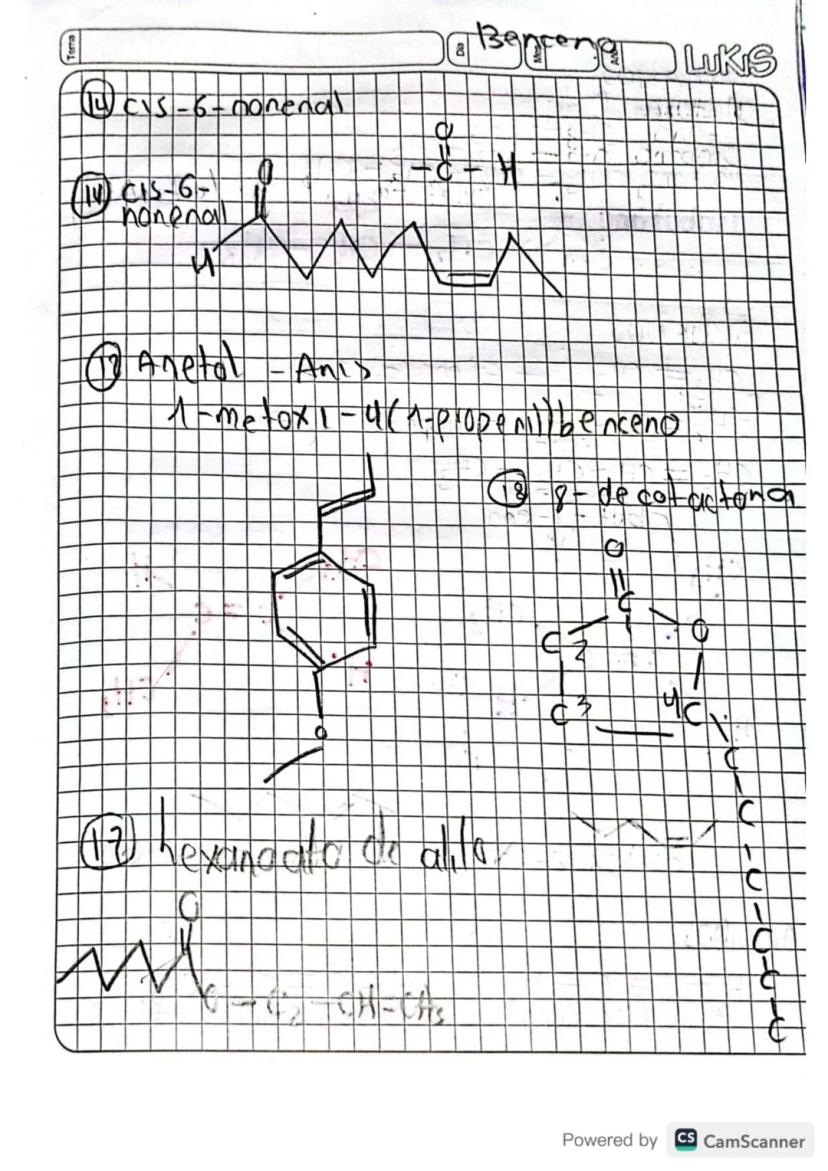 Tema
Día
Benceno
LuKIS
14 cis-6-nonenal
O
-C-H
14 cis-6-
nonenal
O
H
13 Anetol - Anis
1-metoxi-4(1-propenil)benceno
O
18 8-decalactona
O
C
O
C 2
C 3
4 C
C
C
C
C
C
C
17 hexanoato de alilo
O
O-C2-CH-CH3
Powered by CS CamScanner